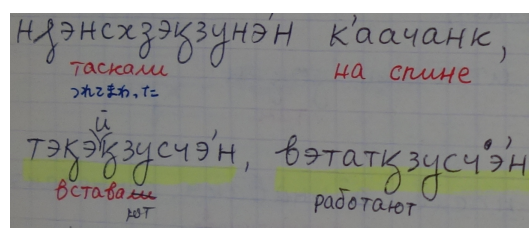 нԓэнсхзэӄзунэ'н к'аачанк,
таскали на спине
つれてまわった
й
тэӄэӄзусчэ'н, вэтатӄзусч'э'н
вставали работают
ют